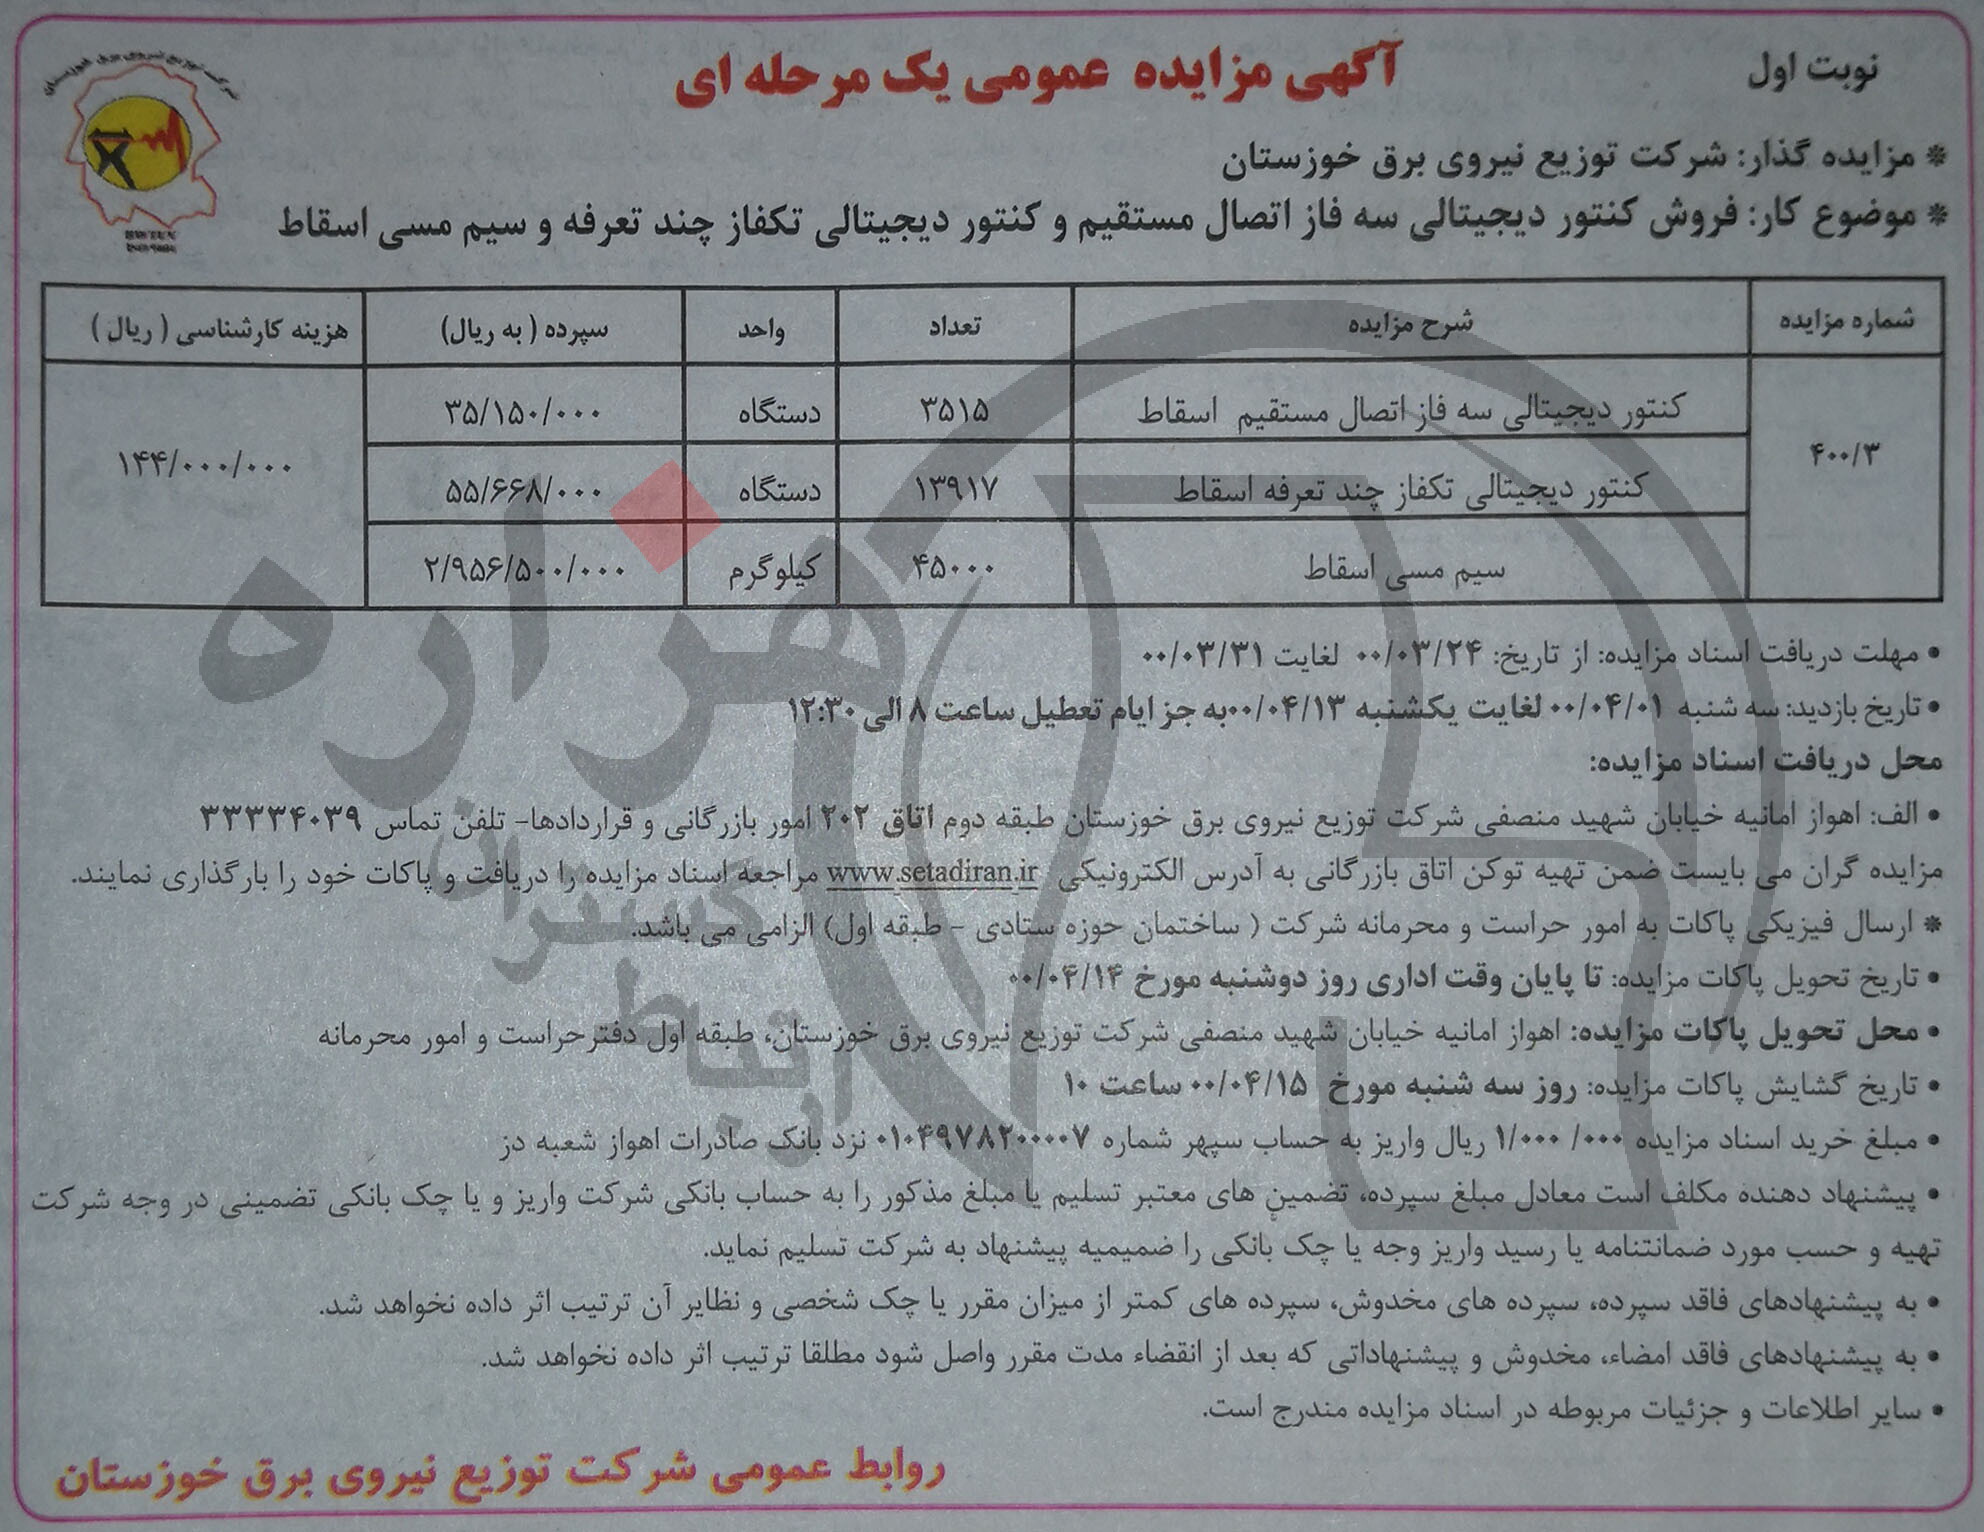 نوبت اول
آگهی مزایده عمومی یک مرحله ای
شرکت توزیع نیروی برق خوزستان
* مزایده گذار: شرکت توزیع نیروی برق خوزستان
* موضوع کار: فروش کنتور دیجیتالی سه فاز اتصال مستقیم و کنتور دیجیتالی تکفاز چند تعرفه و سیم مسی اسقاط
شماره مزایده شرح مزایده تعداد واحد سپرده ( به ریال) هزینه کارشناسی ( ریال )
۴۰۰/۳ کنتور دیجیتالی سه فاز اتصال مستقیم اسقاط ۳۵۱۵ دستگاه ۳۵/۱۵۰/۰۰۰ ۱۴۴/۰۰۰/۰۰۰
کنتور دیجیتالی تکفاز چند تعرفه اسقاط ۱۳۹۱۷ دستگاه ۵۵/۶۶۸/۰۰۰
سیم مسی اسقاط ۴۵۰۰۰ کیلوگرم ۲/۹۵۶/۵۰۰/۰۰۰
• مهلت دریافت اسناد مزایده: از تاریخ: ۰۰/۰۳/۲۴ لغایت ۰۰/۰۳/۳۱
• تاریخ بازدید: سه شنبه ۰۰/۰۴/۰۱ لغایت یکشنبه ۰۰/۰۴/۱۳به جز ایام تعطیل ساعت ۸ الی ۱۲:۳۰
محل دریافت اسناد مزایده:
• الف: اهواز امانیه خیابان شهید منصفی شرکت توزیع نیروی برق خوزستان طبقه دوم اتاق ۲۰۲ امور بازرگانی و قراردادها- تلفن تماس ۳۳۳۳۴۰۳۹
مزایده گران می بایست ضمن تهیه توکن اتاق بازرگانی به آدرس الکترونیکی www.setadiran.ir مراجعه اسناد مزایده را دریافت و پاکات خود را بارگذاری نمایند.
* ارسال فیزیکی پاکات به امور حراست و محرمانه شرکت ( ساختمان حوزه ستادی - طبقه اول) الزامی می باشد.
• تاریخ تحویل پاکات مزایده: تا پایان وقت اداری روز دوشنبه مورخ ۰۰/۰۴/۱۴
• محل تحویل پاکات مزایده: اهواز امانیه خیابان شهید منصفی شرکت توزیع نیروی برق خوزستان، طبقه اول دفترحراست و امور محرمانه
• تاریخ گشایش پاکات مزایده: روز سه شنبه مورخ ۰۰/۰۴/۱۵ ساعت ۱۰
• مبلغ خرید اسناد مزایده ۱/۰۰۰/ ۰۰۰ ریال واریز به حساب سپهر شماره ۰۱۰۴۹۷۸۲۰۰۰۰۷ نزد بانک صادرات اهواز شعبه دز
• پیشنهاد دهنده مکلف است معادل مبلغ سپرده، تضمین های معتبر تسلیم یا مبلغ مذکور را به حساب بانکی شرکت واریز و یا چک بانکی تضمینی در وجه شرکت
تهیه و حسب مورد ضمانتنامه یا رسید واریز وجه یا چک بانکی را ضمیمیه پیشنهاد به شرکت تسلیم نماید.
• به پیشنهادهای فاقد سپرده، سپرده های مخدوش، سپرده های کمتر از میزان مقرر یا چک شخصی و نظایر آن ترتیب اثر داده نخواهد شد.
• به پیشنهادهای فاقد امضاء، مخدوش و پیشنهاداتی که بعد از انقضاء مدت مقرر واصل شود مطلقا ترتیب اثر داده نخواهد شد.
• سایر اطلاعات و جزئیات مربوطه در اسناد مزایده مندرج است.
روابط عمومی شرکت توزیع نیروی برق خوزستان
هزاره
ارتباط گستران